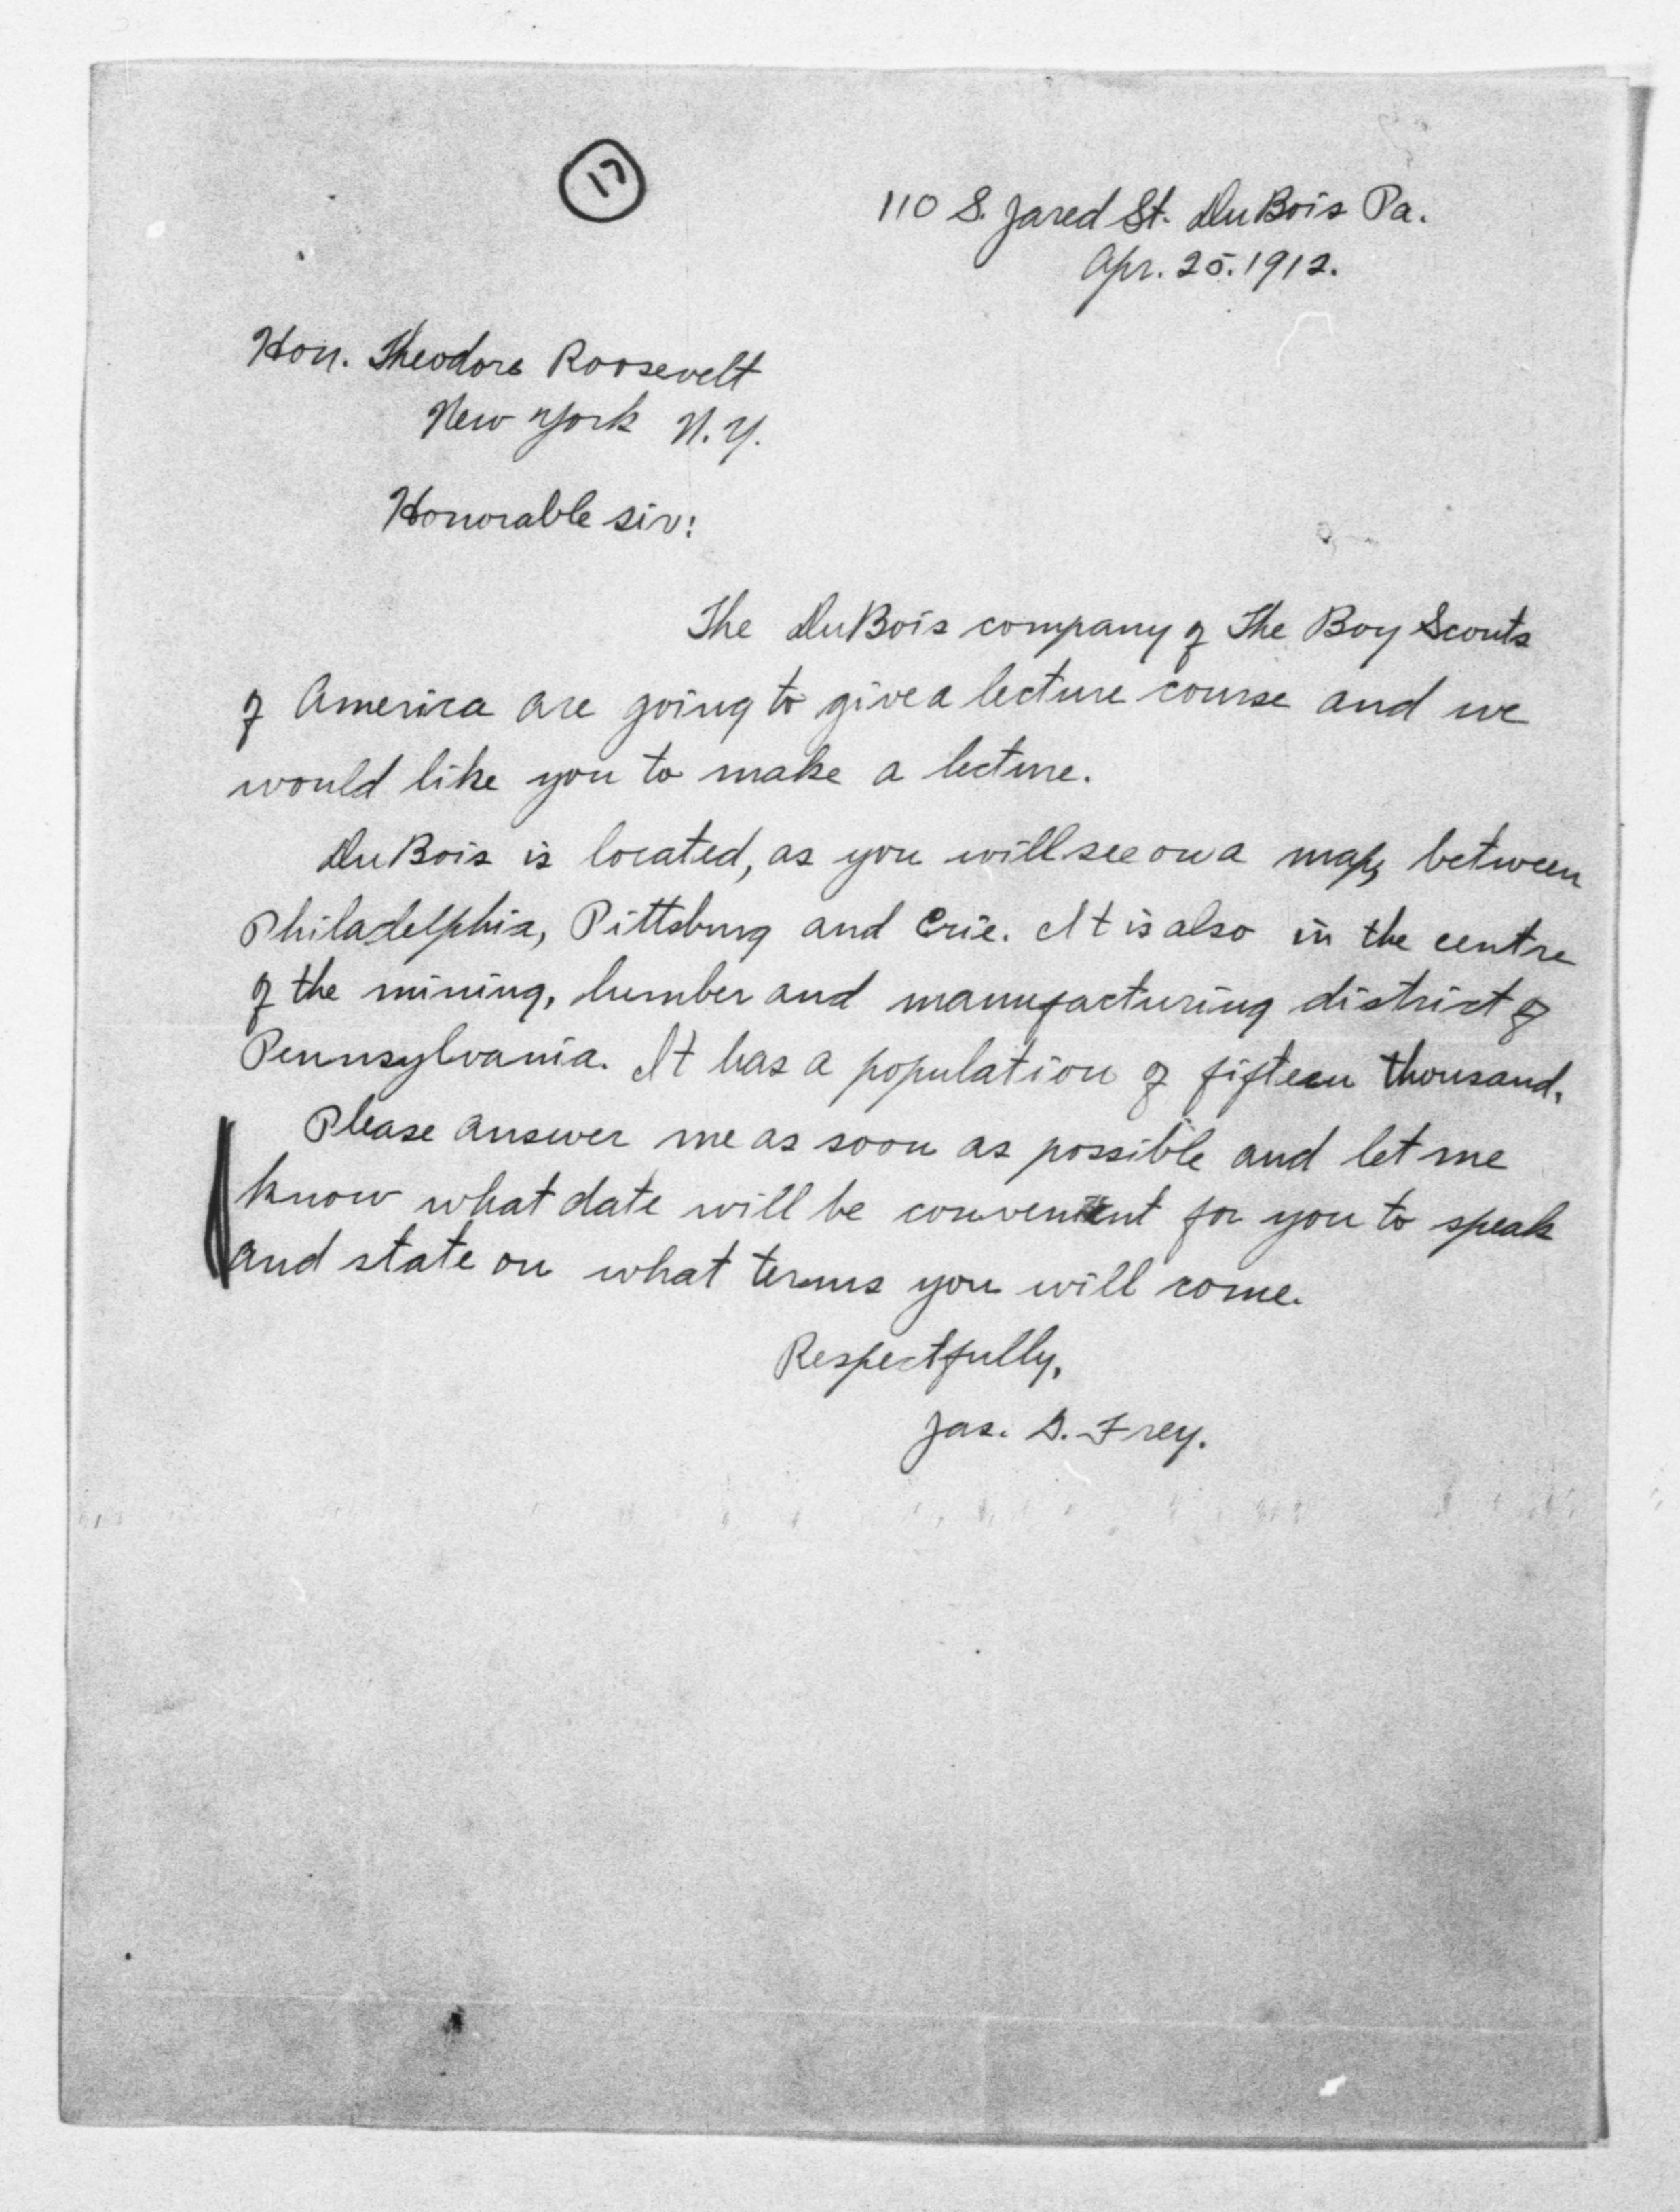 17
110 S. Jared St. DuBois Pa.
Apr. 25. 1912.
Hon. Theodore Roosevelt
New York N.Y.
Honorable sir:
The DuBois company of The Boy Scouts
of America are going to give a lecture course and we
would like you to make a lecture.
DuBois is located, as you will see on a map, between
Philadelphia, Pittsburg and Erie. It is also in the centre
of the mining, lumber and manufacturing district of
Pennsylvania. It has a population of fifteen thousand.
Please answer me as soon as possible and let me
know what date will be convenient for you to speak
and state on what terms you will come.
Respectfully,
Jas. D. Frey.